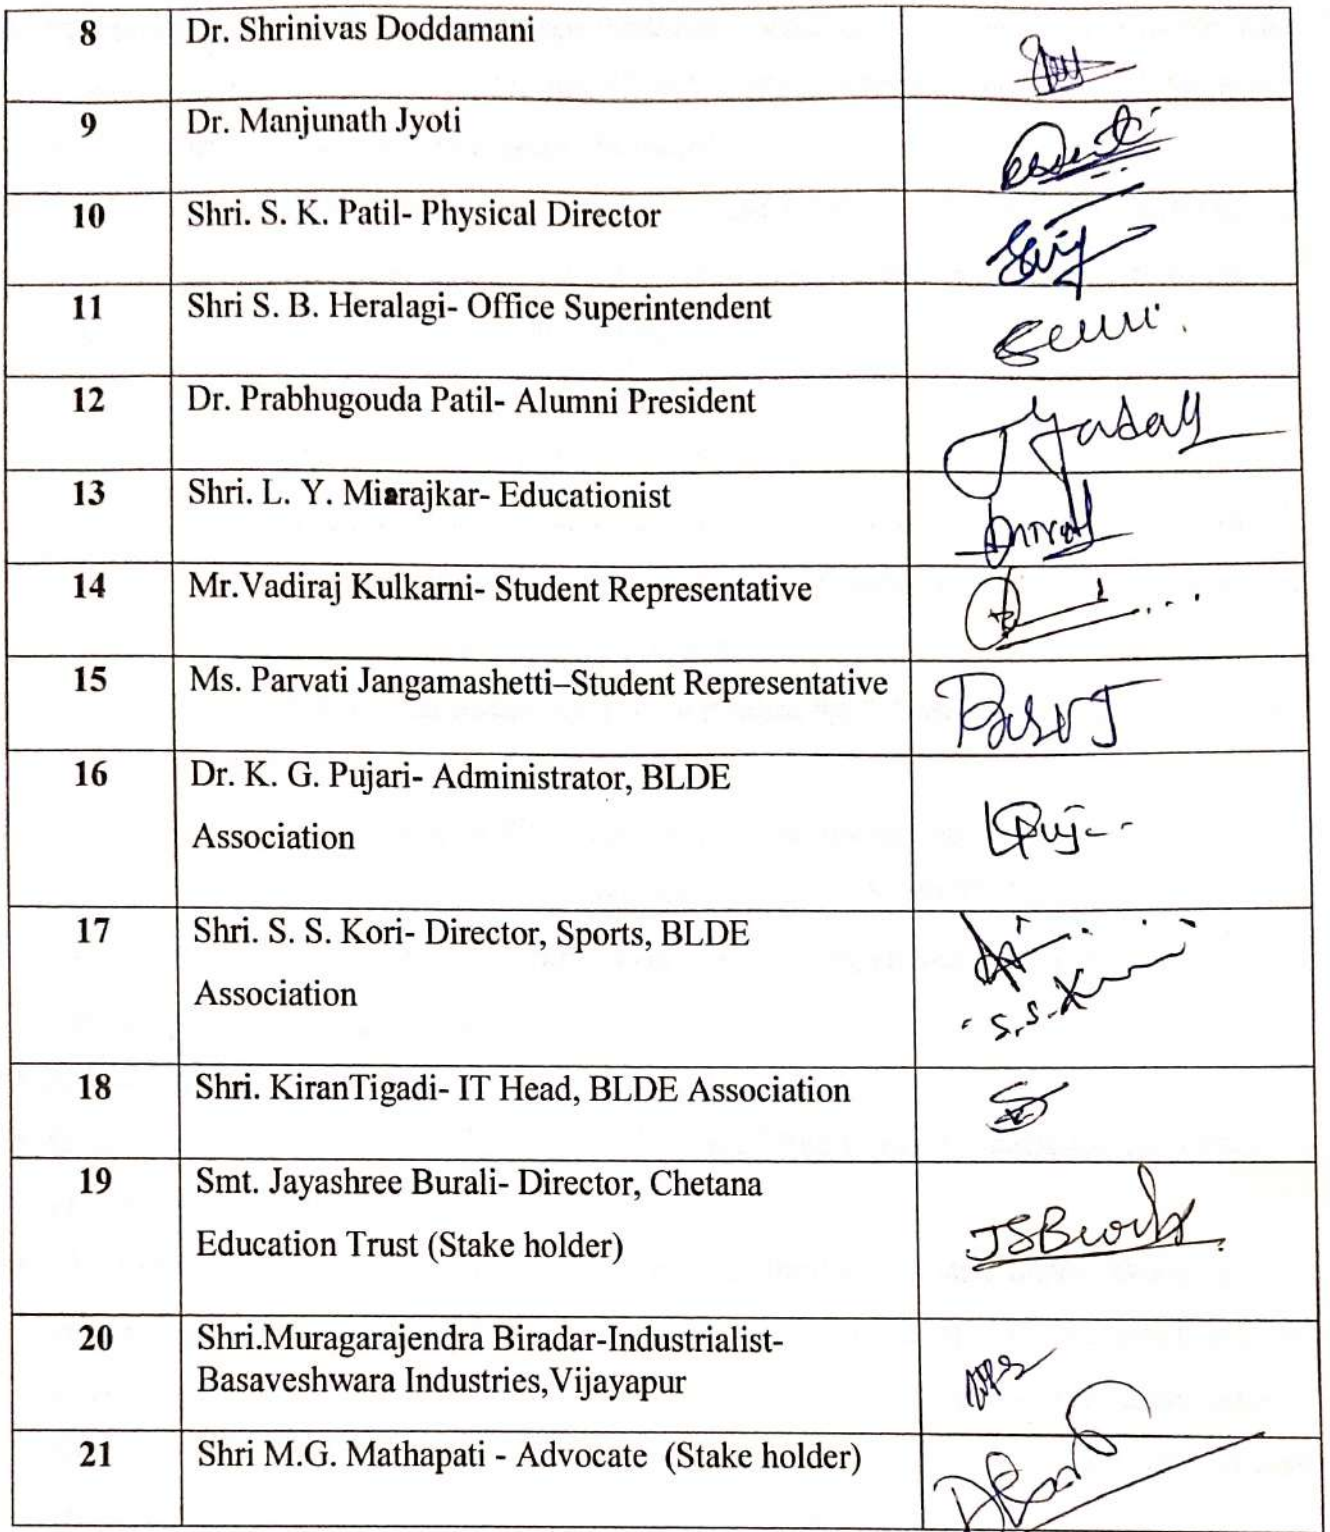 8 Dr. Shrinivas Doddamani
9 Dr. Manjunath Jyoti
10 Shri. S. K. Patil- Physical Director
11 Shri S. B. Heralagi- Office Superintendent
12 Dr. Prabhugouda Patil- Alumni President
13 Shri. L. Y. Miarajkar- Educationist
14 Mr.Vadiraj Kulkarni- Student Representative
15 Ms. Parvati Jangamashetti–Student Representative
16 Dr. K. G. Pujari- Administrator, BLDE
Association
17 Shri. S. S. Kori- Director, Sports, BLDE
Association
18 Shri. KiranTigadi- IT Head, BLDE Association
19 Smt. Jayashree Burali- Director, Chetana
Education Trust (Stake holder)
20 Shri.Muragarajendra Biradar-Industrialist-
Basaveshwara Industries,Vijayapur
21 Shri M.G. Mathapati - Advocate (Stake holder)